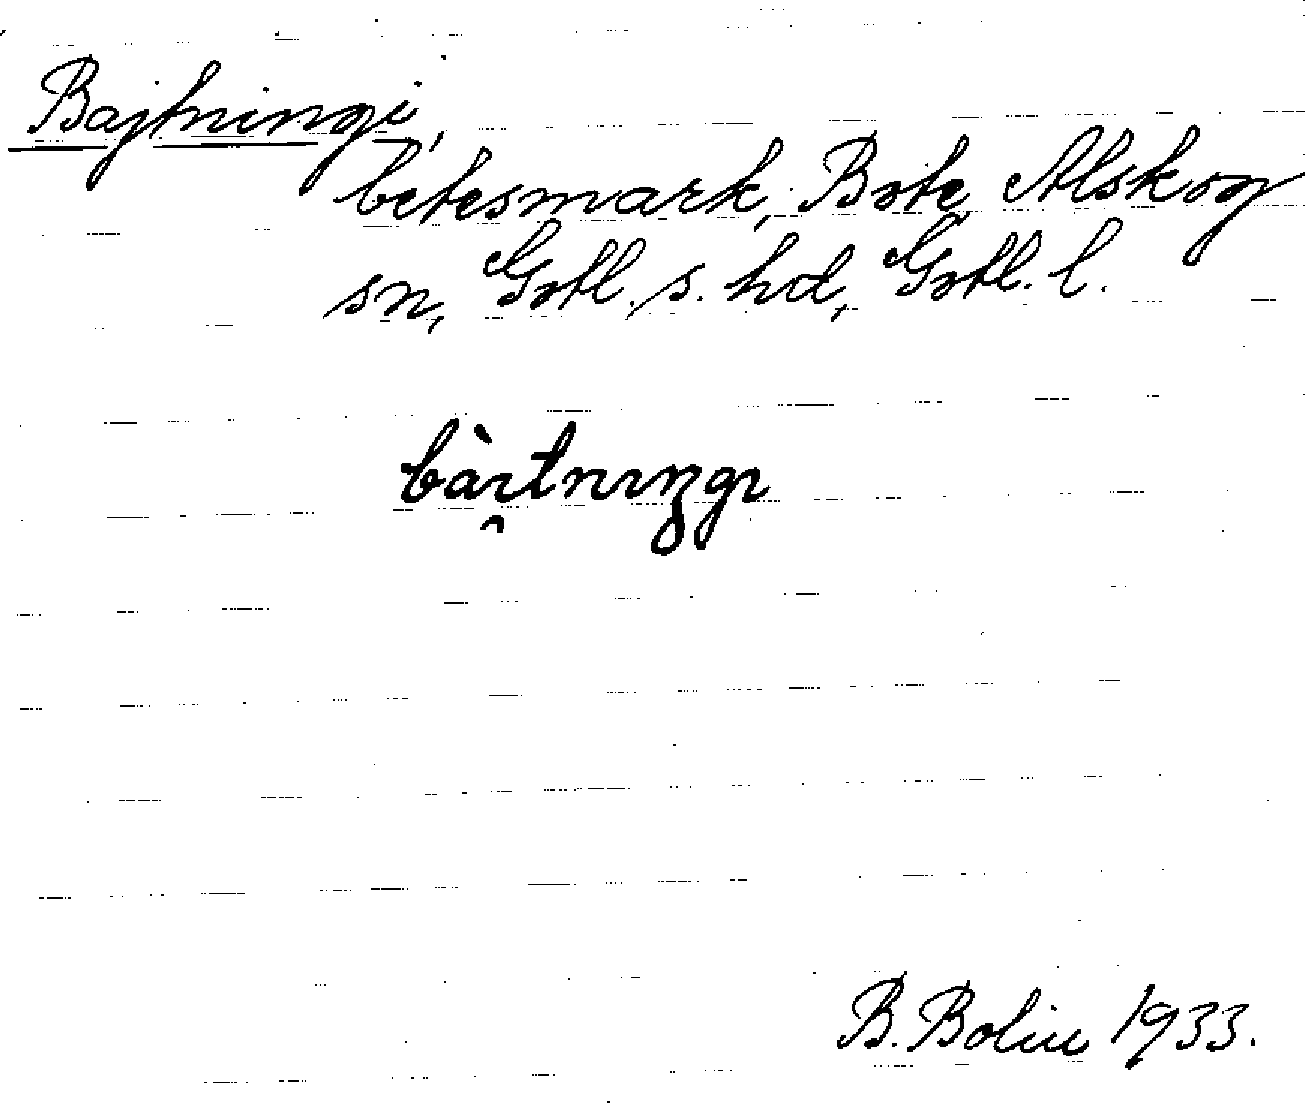 Bajtningi,
betesmark, Bote, Alskog
sn, Gotl. s. hd, Gotl. l.
bàɪtnɪŋgɪ
B. Bolin 1933.